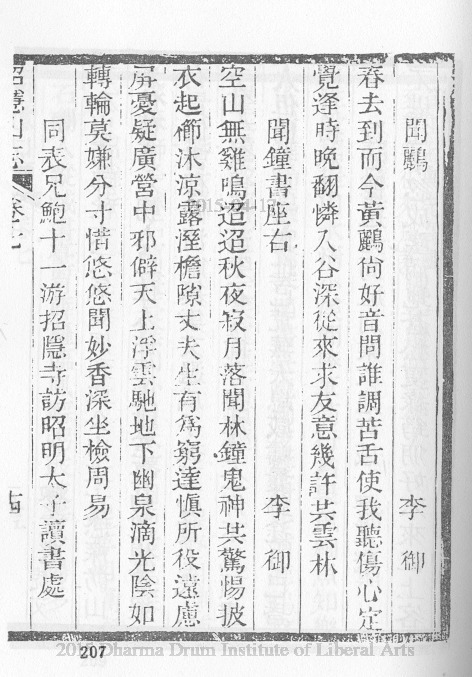 聞鸝 李御
春去到而今黃鸝尙好音問誰調苦舌使我聽傷心定
覺逢時晚翻憐入谷深從來求友意幾許共雲林
聞鐘書座右 李御
空山無雞鳴迢迢秋夜寂月落聞林鐘鬼神共驚惕披
衣起櫛沐涼露溼檐隙丈夫生有爲窮達愼所役遠慮
屛憂疑廣營中邪僻天上浮雲馳地下幽泉滴光陰如
轉輪莫嫌分寸惜悠悠聞妙香深坐檢周易
同表兄鮑十一游招隱寺訪昭明太子讀書處
招隱山志 卷七 十四
207
Dharma Drum Institute of Liberal Arts